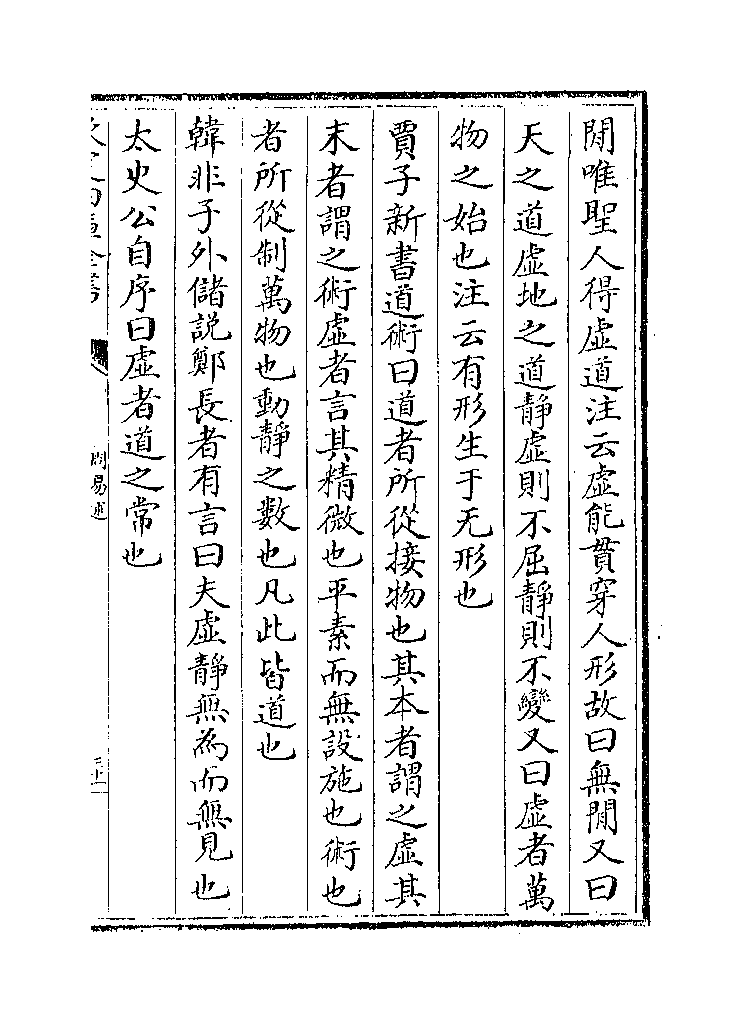 閒唯聖人得虛道注云虛能貫穿人形故曰無閒又曰
天之道虛地之道靜虛則不屈靜則不變又曰虛者萬
物之始也注云有形生于无形也
賈子新書道術曰道者所從接物也其本者謂之虛其
末者謂之術虛者言其精微也平素而無設施也術也
者所從制萬物也動靜之數也凡此皆道也
韓非子外儲説鄭長者有言曰夫虛靜無為而無見也
太史公自序曰虛者道之常也
周易述
三十一